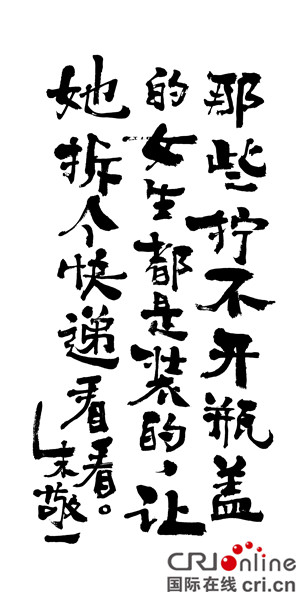 那些拧不开瓶盖
的女生都是装的，让
她拆个快递看看。
朱敬一
CRIonline
国际在线 cri.cn